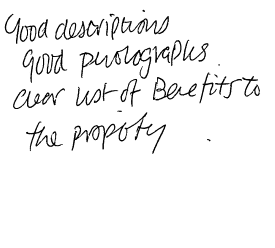 Good descriptions
Good photographs.
Clear list of Benefits to
the property.